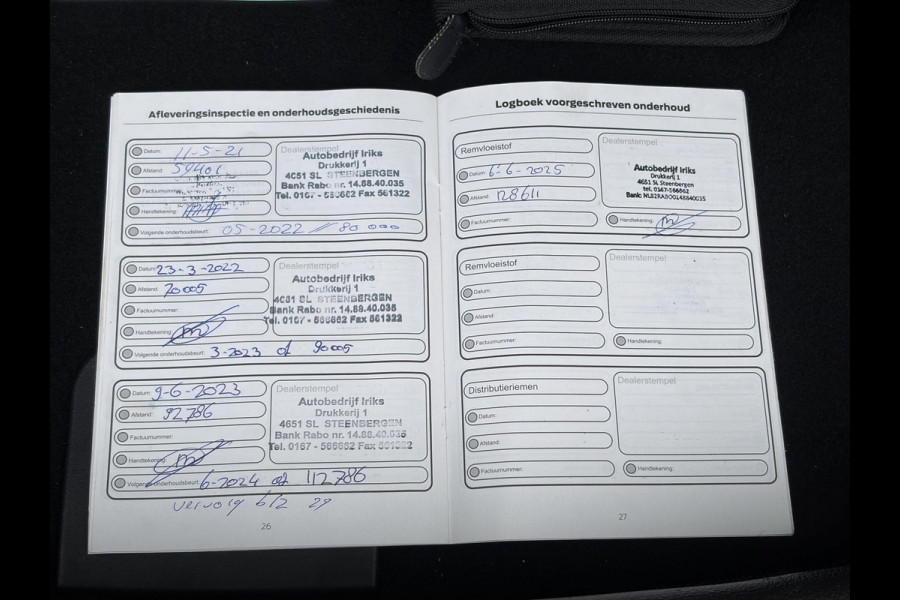 Afleveringsinspectie en onderhoudsgeschiedenis
Datum: 11-5-21
Afstand: 59401
Factuurnummer:
Handtekening:
Dealerstempel
Autobedrijf Iriks
Drukkerij 1
4651 SL STEENBERGEN
Bank Rabo nr. 14.88.40.035
Tel. 0167 - 566662 Fax 561322
Volgende onderhoudsbeurt: 05-2022 // 80 000
Datum: 23-3-2022
Afstand: 70005
Factuurnummer:
Handtekening:
Dealerstempel
Autobedrijf Iriks
Drukkerij 1
4651 SL STEENBERGEN
Bank Rabo nr. 14.88.40.035
Tel. 0167 - 566662 Fax 561322
Volgende onderhoudsbeurt: 3-2023 of 90005
Datum: 9-6-2023
Afstand: 92786
Factuurnummer:
Handtekening:
Dealerstempel
Autobedrijf Iriks
Drukkerij 1
4651 SL STEENBERGEN
Bank Rabo nr. 14.88.40.035
Tel. 0167 - 566662 Fax 561322
Volgende onderhoudsbeurt: 6-2024 of 112786
vervolg blz 29
26
Logboek voorgeschreven onderhoud
Remvloeistof
Datum: 6-6-2025
Afstand: 128611
Factuurnummer:
Dealerstempel
Autobedrijf Iriks
Drukkerij 1
4651 SL Steenbergen
tel. 0167-566662
Bank: NL82RABO0148840035
Handtekening:
Remvloeistof
Datum:
Afstand:
Factuurnummer:
Dealerstempel
Handtekening:
Distributieriemen
Datum:
Afstand:
Factuurnummer:
Dealerstempel
Handtekening:
27